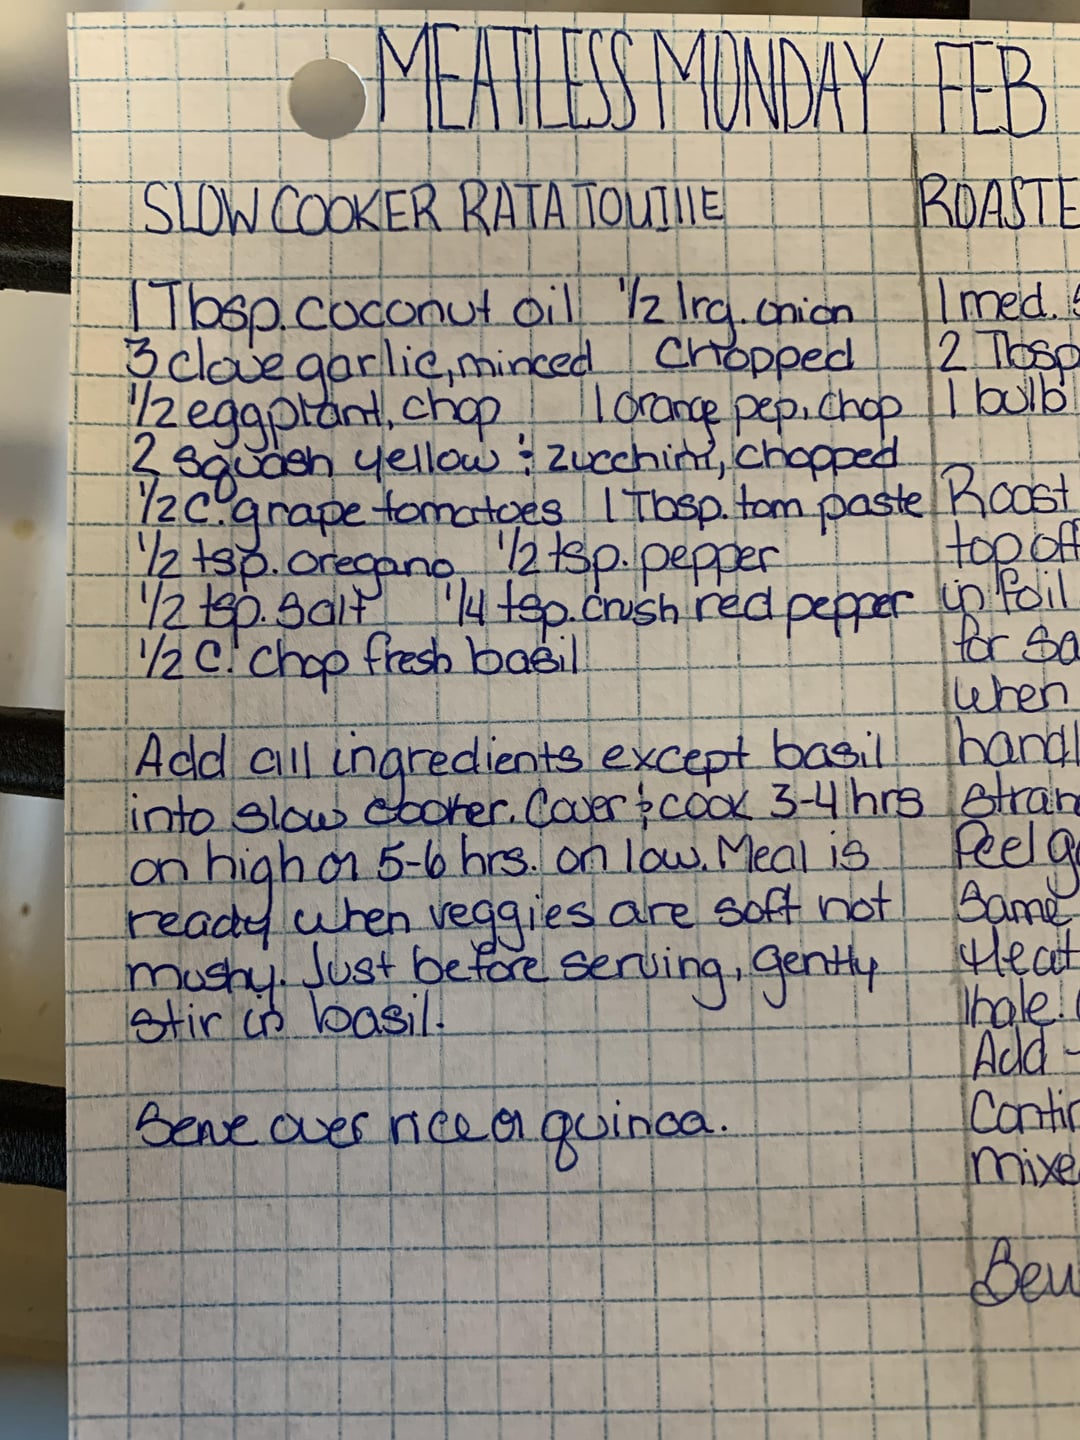 MEATLESS MONDAY FEB
SLOW COOKER RATATOUILLE
1 Tbsp. coconut oil 1/2 lrg. onion
3 clove garlic, minced Chopped
1/2 eggplant, chop 1 orange pep, chop
2 squash yellow & zucchini, chopped
1/2 C. grape tomatoes 1 Tbsp. tom paste
1/2 tsp. oregano 1/2 tsp. pepper
1/2 tsp. salt 1/4 tsp. crush red pepper
1/2 C. chop fresh basil
Add all ingredients except basil
into slow cooker. Cover & cook 3-4 hrs
on high or 5-6 hrs. on low. Meal is
ready when veggies are soft not
mushy. Just before serving, gently
stir in basil.
Serve over rice or quinoa.
ROASTE
1 med.
2 Tbsp
1 bulb
Roast
top off
in foil
for sa
when
handl
stran
Peel ga
Same
Heat
Add
Contin
mixe